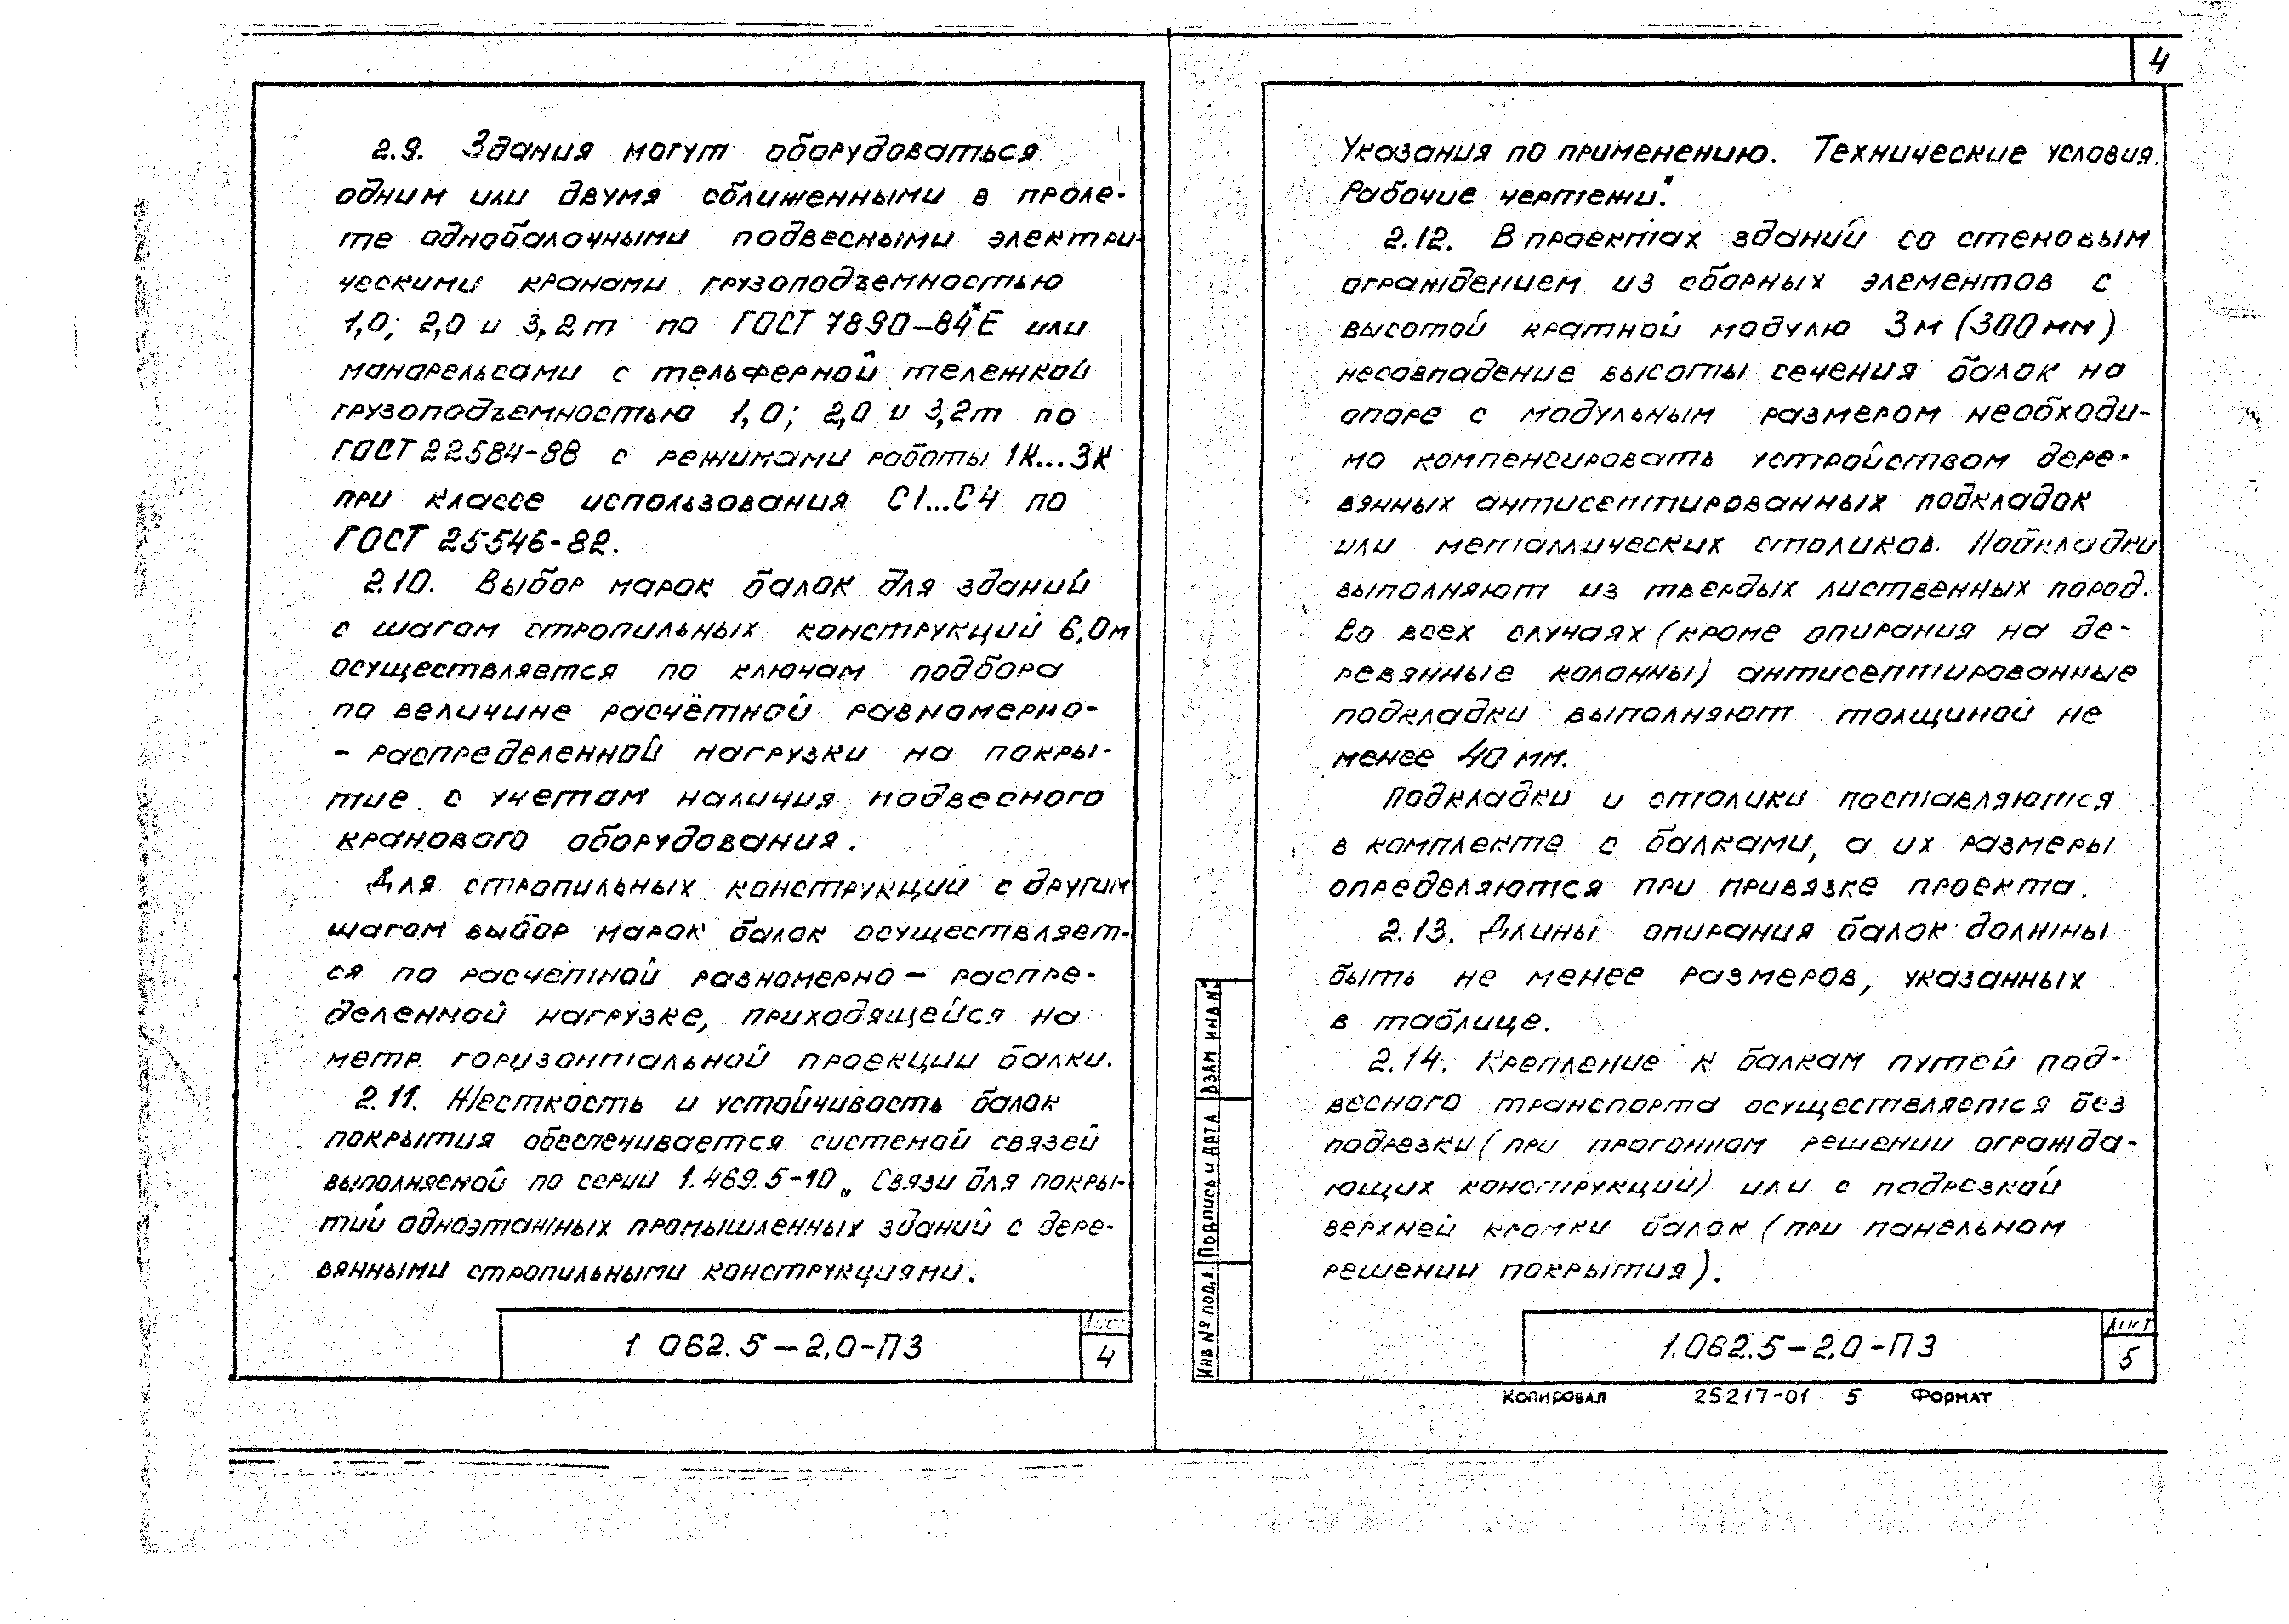 2.9. Здания могут оборудоваться
одним или двумя сближенными в проле-
те однобалочными подвесными электри-
ческими кранами грузоподъемностью
1,0; 2,0 и 3,2т по ГОСТ 7890-84*Е или
монорельсами с тельферной тележкой
грузоподъемностью 1,0; 2,0 и 3,2т по
ГОСТ 22584-88 с режимами работы 1К...3К
при классе использования С1...С4 по
ГОСТ 25546-82.
2.10. Выбор марок балок для зданий
с шагом стропильных конструкций 6,0м
осуществляется по ключам подбора
по величине расчётной равномерно-
- распределенной нагрузки на покры-
тие с учетом наличия подвесного
кранового оборудования.
Для стропильных конструкций с другим
шагом выбор марок балок осуществляет-
ся по расчетной равномерно - распре-
деленной нагрузке, приходящейся на
метр горизонтальной проекции балки.
2.11. Жесткость и устойчивость балок
покрытия обеспечивается системой связей
выполняемой по серии 1.469.5-10 „Связи для покры-
тий одноэтажных промышленных зданий с дере-
вянными стропильными конструкциями.
1 062.5-2.0-ПЗ
Лист
4
4
Указания по применению. Технические условия.
Рабочие чертежи".
2.12. В проектах зданий со стеновым
ограждением из сборных элементов с
высотой кратной модулю 3м (300мм)
несовпадение высоты сечения балок на
опоре с модульным размером необходи-
мо компенсировать устройством дере-
вянных антисептированных подкладок
или металлических столиков. Подкладки
выполняют из твердых лиственных пород.
Во всех случаях (кроме опирания на де-
ревянные колонны) антисептированные
подкладки выполняют толщиной не
менее 40 мм.
Подкладки и столики поставляются
в комплекте с балками, а их размеры
определяются при привязке проекта.
2.13. Длины опирания балок должны
быть не менее размеров, указанных
в таблице.
2.14. Крепление к балкам путей под-
весного транспорта осуществляется без
подрезки (при прогонном решении огражда-
ющих конструкций) или с подрезкой
верхней кромки балок (при панельном
решении покрытия).
Инв № подл.
Подпись и дата
Взам инв №
1.062.5-2.0-ПЗ
Лист
5
Копировал 25217-01 5 Формат